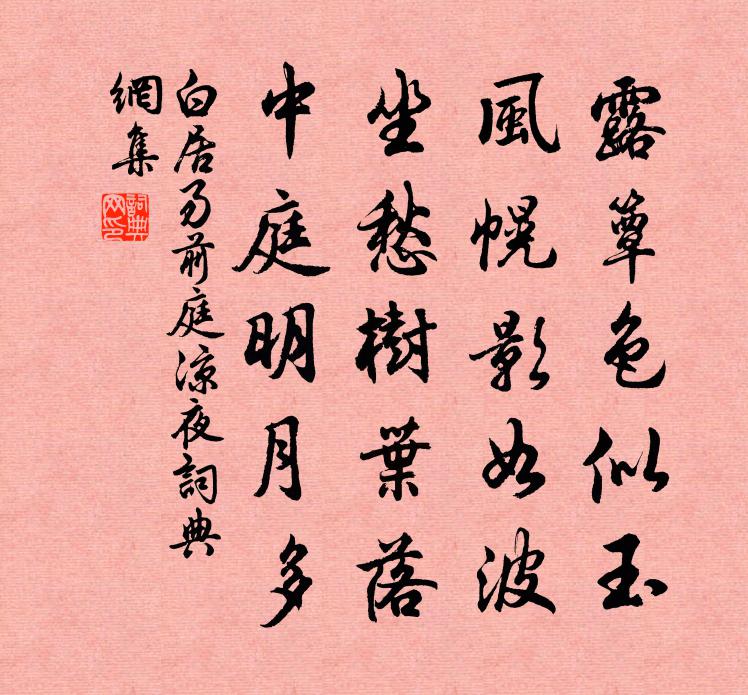 露簟色似玉
風幌影如波
坐愁樹葉落
中庭明月多
白居易前庭涼夜詞典
網集
詞典網印